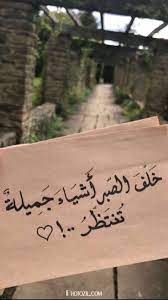 خَلفَ الصَبرِ أَشياءَ جَميلةً
تَنتَظرُ ..! ♡
FHOTOZIL.COM